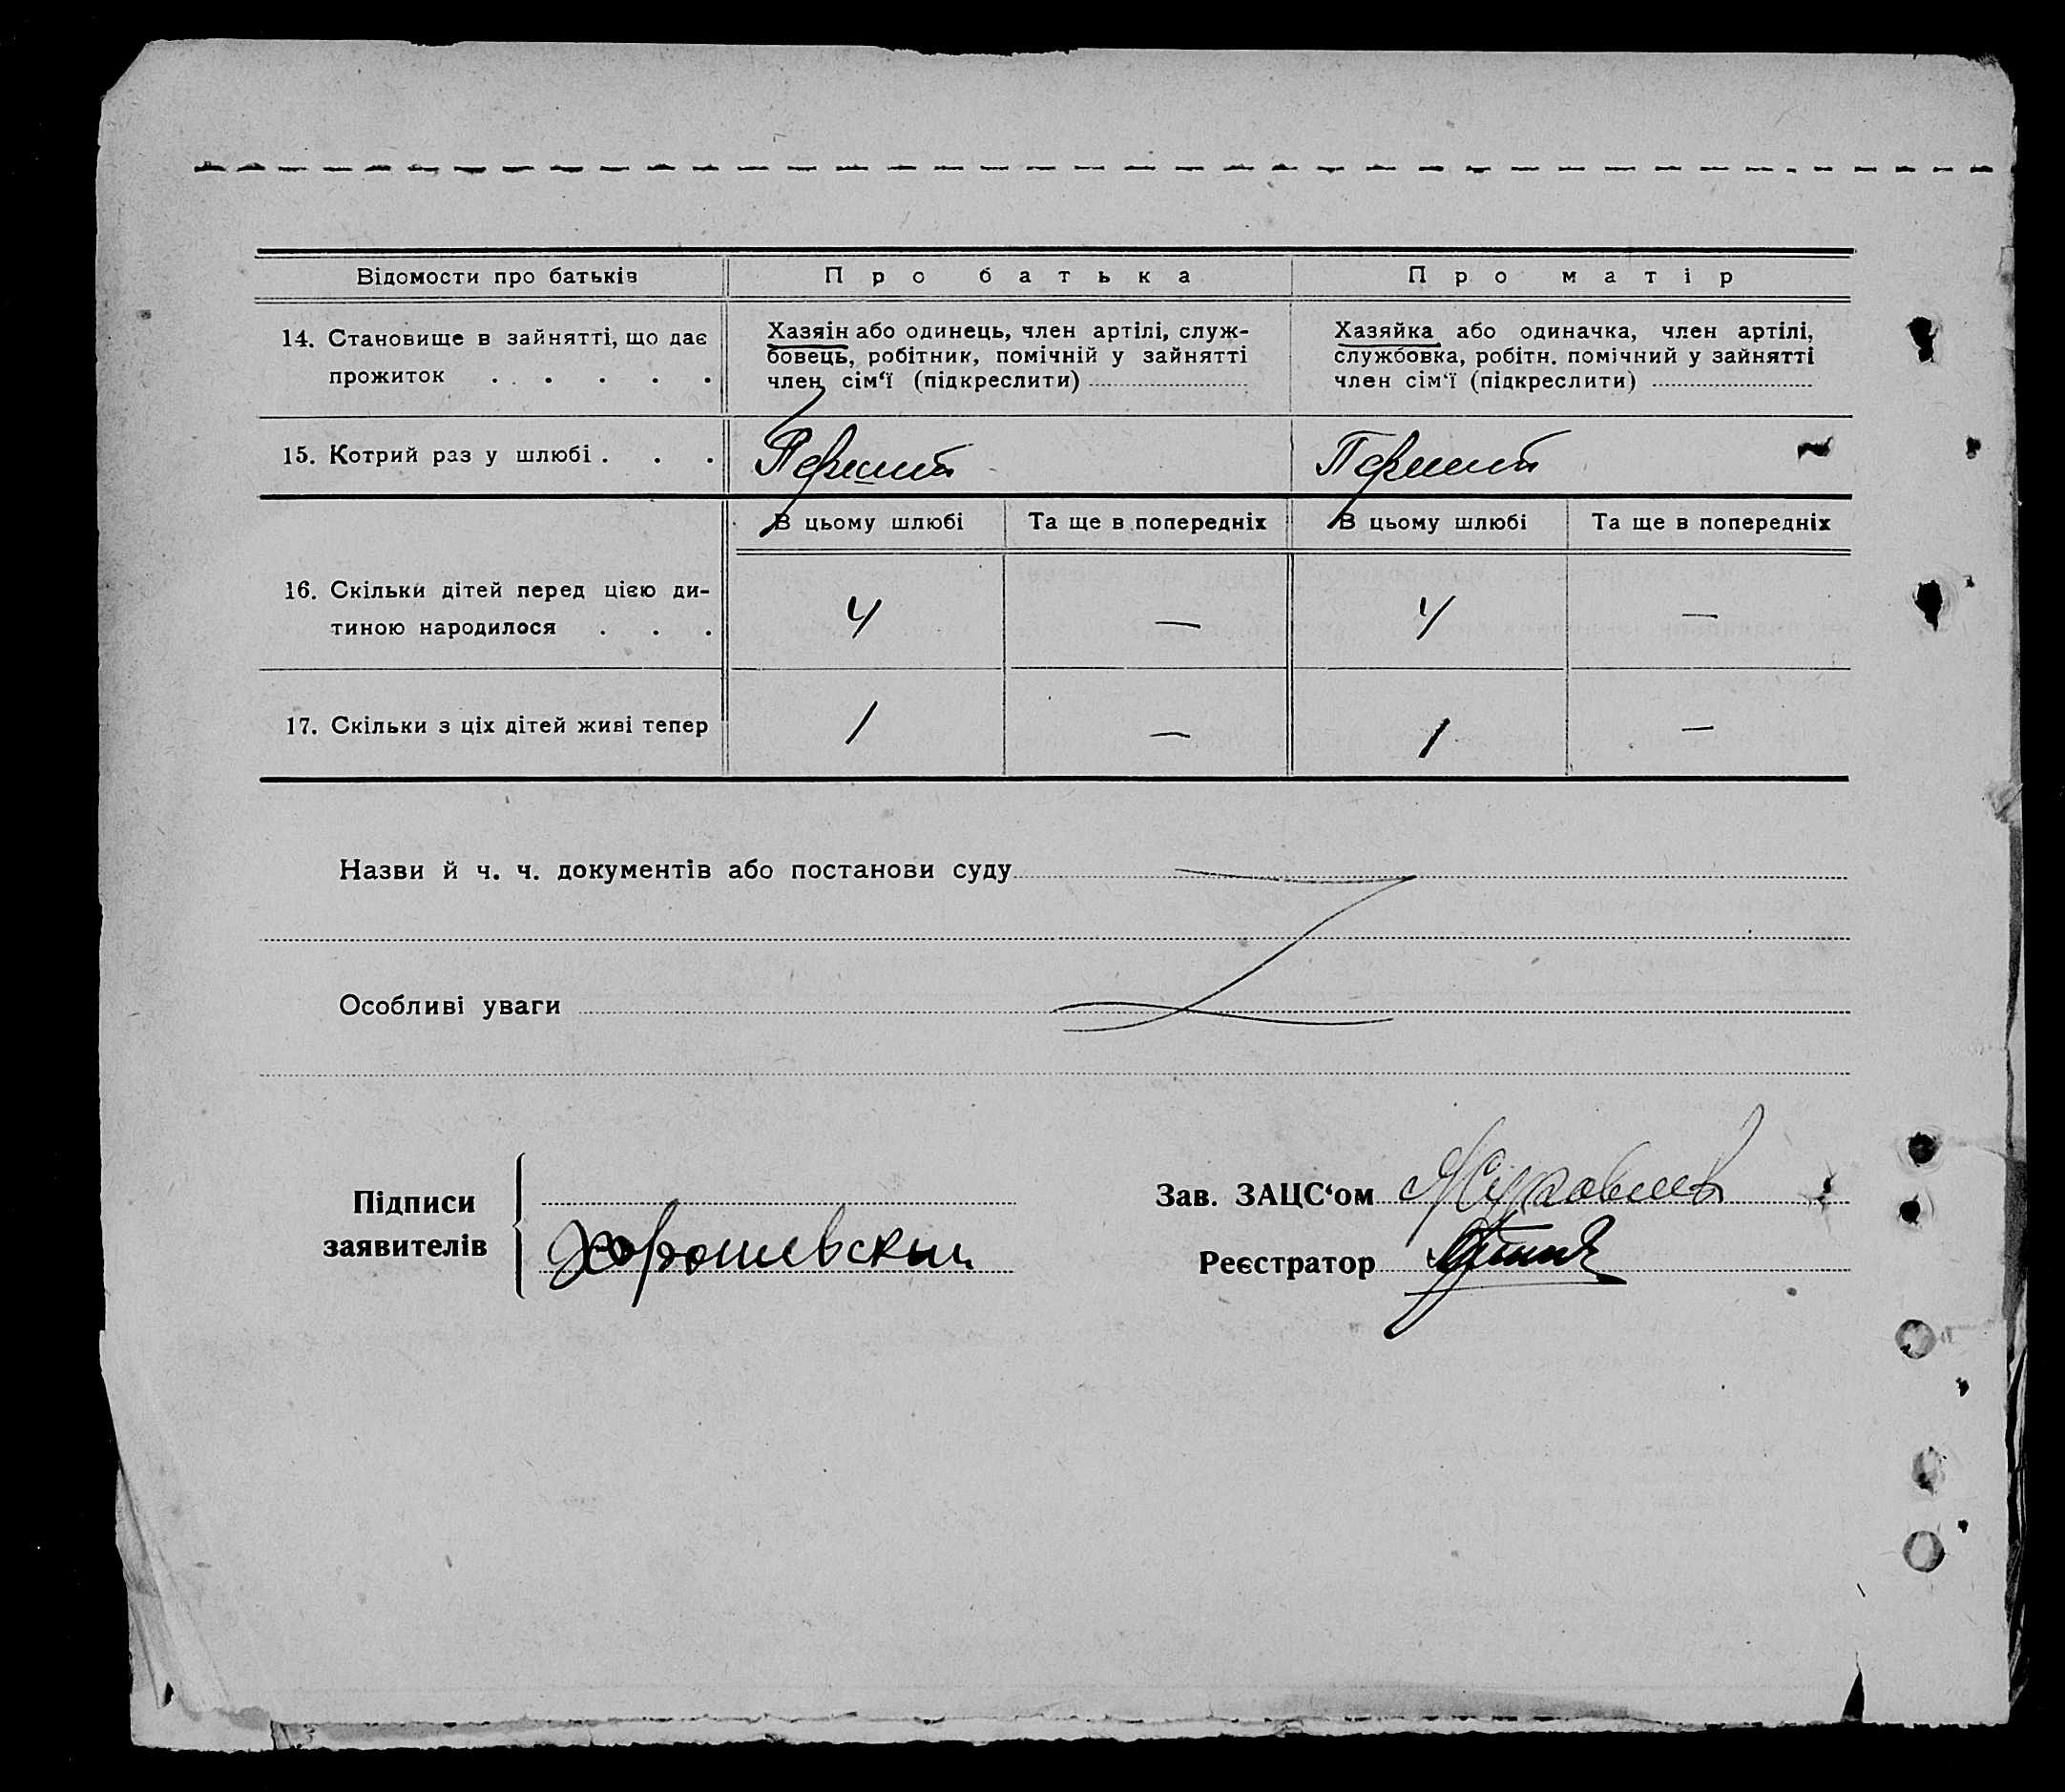 Відомости про батьків
Про батька
Про матір
14. Становище в зайнятті, що дає
прожиток . . . . .
Хазяін або одинець, член артілі, служ-
бовець, робітник, помічній у зайнятті
член сім'ї (підкреслити)
Хазяйка або одиначка, член артілі,
службовка, робітн. помічний у зайнятті
член сім'ї (підкреслити)
15. Котрий раз у шлюбі . . .
Перший
Перший
В цьому шлюбі
Та ще в попередніх
В цьому шлюбі
Та ще в попередніх
16. Скільки дітей перед цією ди-
тиною народилося . . .
4
—
4
—
17. Скільки з ціх дітей живі тепер
1
—
1
—
Назви й ч. ч. документів або постанови суду
Особливі уваги
Підписи
заявителів
Хорошевский
Зав. ЗАЦС'ом
Реєстратор